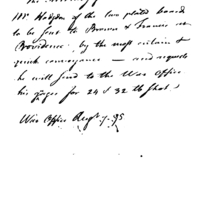 Mr Hodgdon
to be sent to Brown & Francis at
Providence by the most certain &
quick conveyance — and requests
he will send to the War Office
his gages for 24 & 32 lb shot.
War Office Augt 7. 95